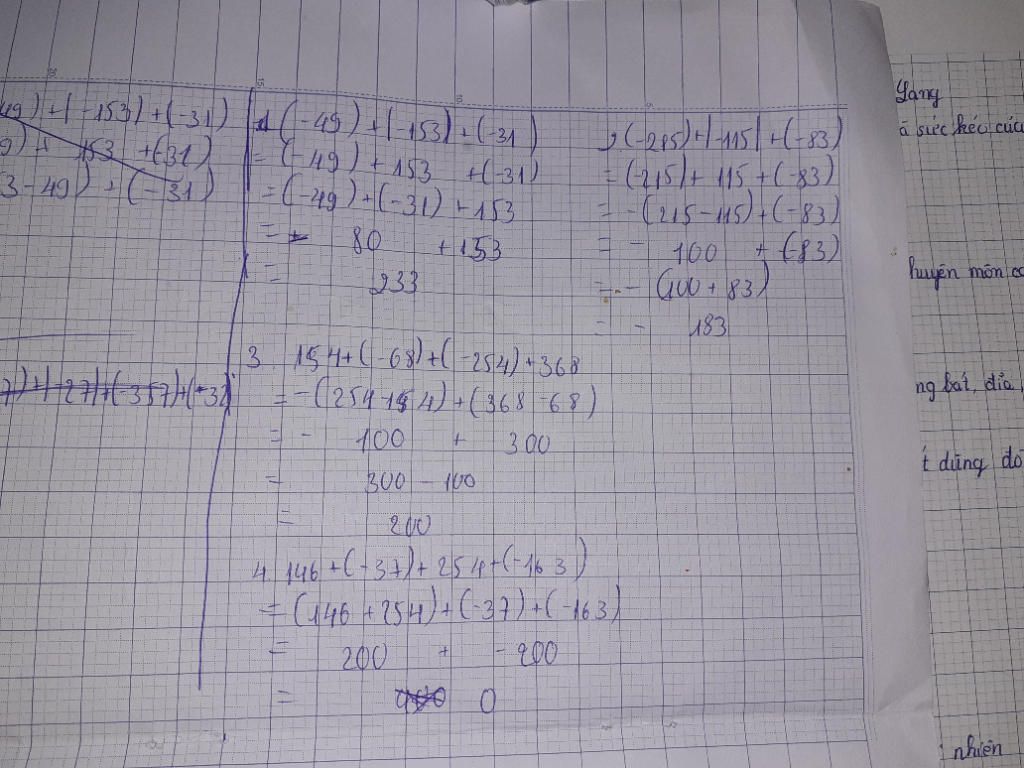 49) + |-153) + (-31)
9) + 153 + (31)
3 - 49) + (-31)
7) + |-27| + (-357) + (-32)
1 (-49) + |-153) + (-31)
= (-49) + 153 + (-31)
= (-49) + (-31) + 153
= - 80 + 153
= 233
2 (-215) + |-115| + (-83)
= (-215) + 115 + (-83)
= -(215 - 115) + (-83)
= - 100 + (-83)
= - (100 + 83)
= - 183
3. 154 + (-68) + (-254) + 368
= -(254 - 154) + (368 - 68)
= - 100 + 300
= 300 - 100
= 200
4. 146 + (-37) + 254 + (-163)
= (146 + 254) + (-37) + (-163)
= 200 + - 200
= 0
Lang
ã sức kéo của
huyên môn
ng bát, đĩa,
t dũng
nhiên